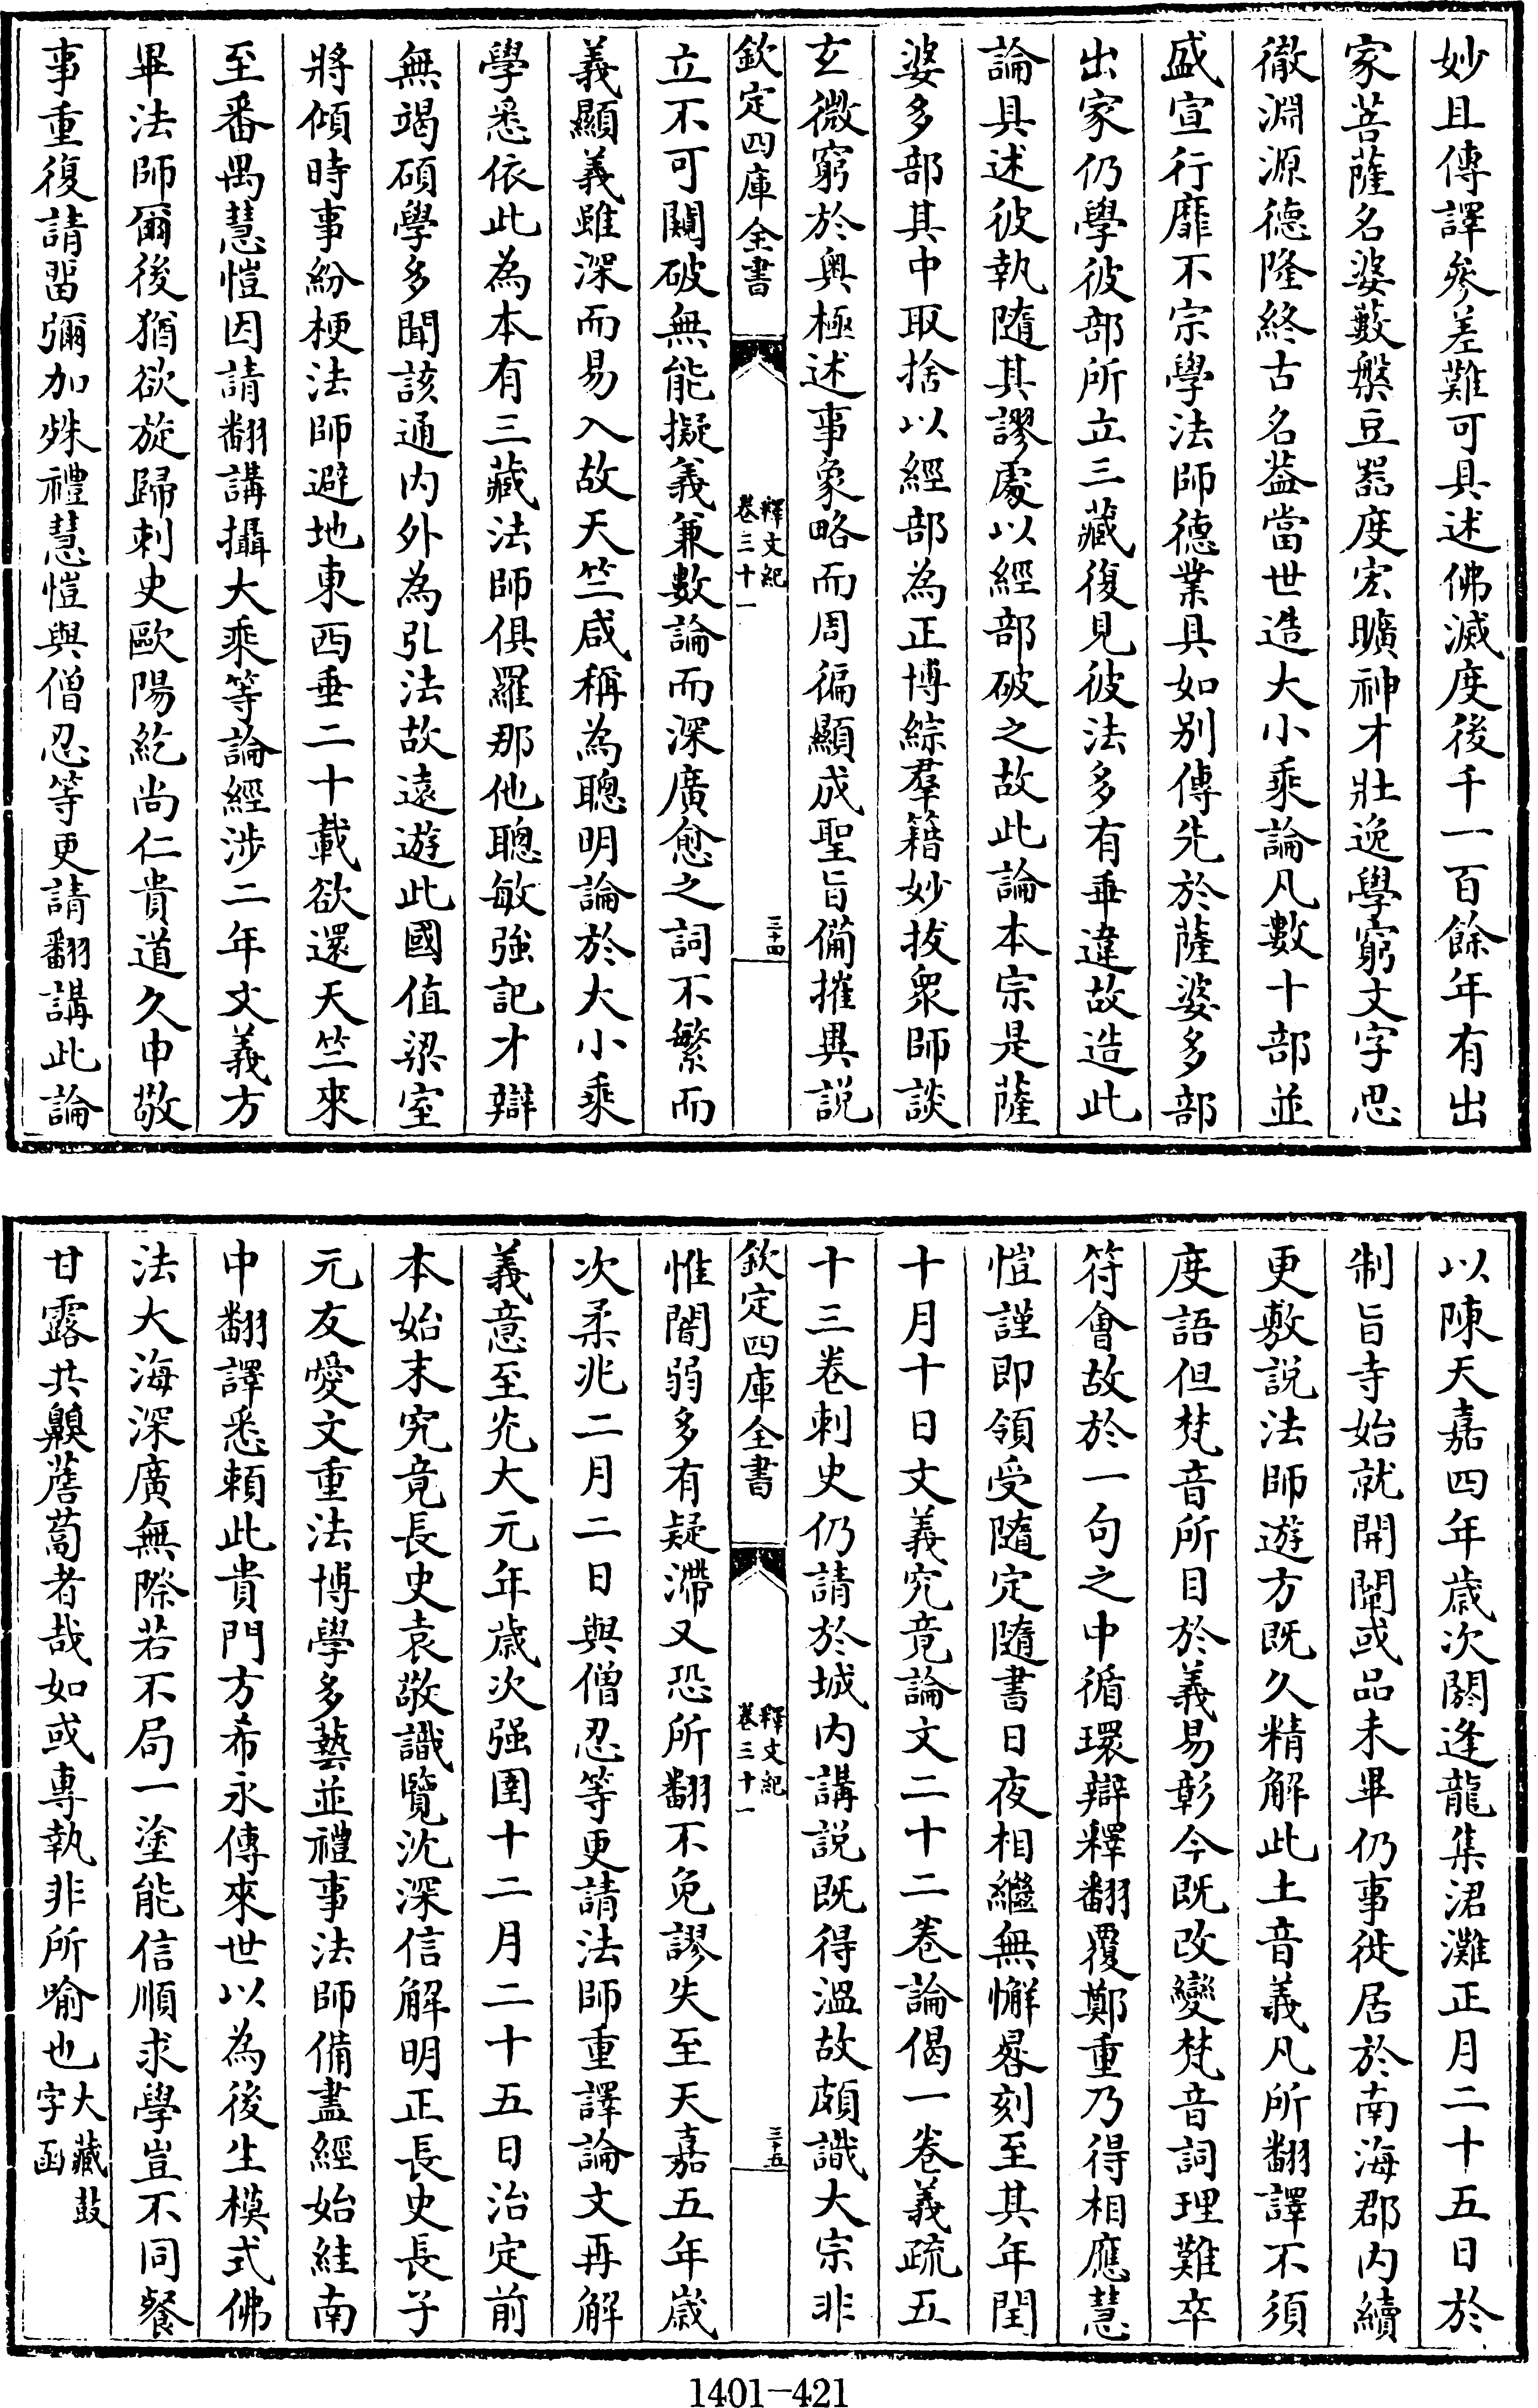 妙且傳譯參差難可具述佛滅度後千一百餘年有出
家菩薩名婆藪槃豆器度宏曠神才壯逸學窮文字思
徹淵源德隆終古名葢當世造大小乘論凡數十部並
盛宣行靡不宗學法師德業具如别傳先於薩婆多部
出家仍學彼部所立三藏復見彼法多有乖違故造此
論具述彼執隨其謬處以經部破之故此論本宗是薩
婆多部其中取捨以經部為正博綜羣籍妙拔衆師談
玄微窮於奥極述事象略而周徧顯成聖旨備摧異説
欽定四庫全書
釋文紀
卷三十一
三十四
立不可闚破無能擬義兼數論而深廣愈之詞不繁而
義顯義雖深而易入故天竺咸稱為聰明論於大小乘
學悉依此為本有三藏法師俱羅那他聰敏強記才辯
無竭碩學多聞該通内外為引法故遠遊此國值梁室
將傾時事紛梗法師避地東西垂二十載欲還天竺來
至番禺慧愷因請翻講攝大乘等論經涉二年文義方
畢法師爾後猶欲旋歸刺史歐陽紇尚仁貴道久申敬
事重復請畱彌加殊禮慧愷與僧忍等更請翻講此論
以陳天嘉四年歲次閼逢龍集涒灘正月二十五日於
制旨寺始就開闡或品未畢仍事徙居於南海郡内續
更敷説法師遊方既久精解此土音義凡所翻譯不須
度語但梵音所目於義易彰今既改變梵音詞理難卒
符會故於一句之中循環辯釋翻覆鄭重乃得相應慧
愷謹即領受隨定隨書日夜相繼無懈晷刻至其年閏
十月十日文義究竟論文二十二卷論偈一卷義疏五
十三卷刺史仍請於城内講説既得溫故頗識大宗非
欽定四庫全書
釋文紀
卷三十一
三十五
惟闇弱多有疑滯又恐所翻不免謬失至天嘉五年歲
次柔兆二月二日與僧忍等更請法師重譯論文再解
義意至光大元年歲次强圉十二月二十五日治定前
本始末究竟長史袁敬識覽沈深信解明正長史長子
元友愛文重法博學多藝並禮事法師備盡經始絓南
中翻譯悉賴此貴門方希永傳來世以為後生模式佛
法大海深廣無際若不局一塗能信順求學豈不同餐
甘露共齅薝蔔者哉如或專執非所喻也大藏鼓
字函
1401-421